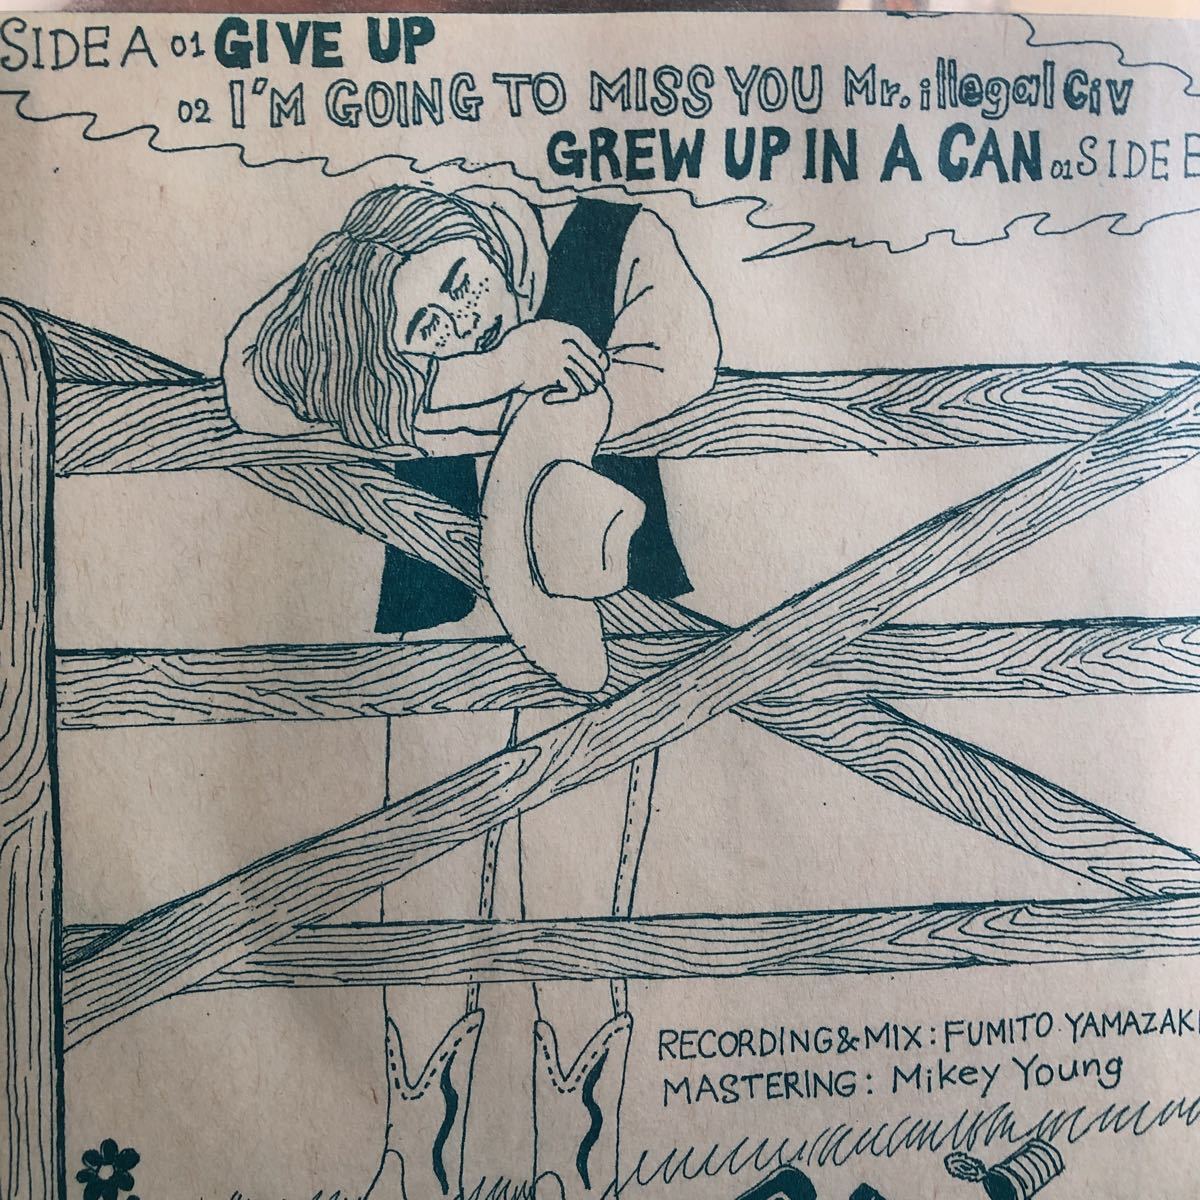 SIDE A 01 GIVE UP
02 I'M GOING TO MISS YOU Mr. illegal Civ
GREW UP IN A CAN 01 SIDE
RECORDING&MIX: FUMITO YAMAZAKI
MASTERING: Mikey Young